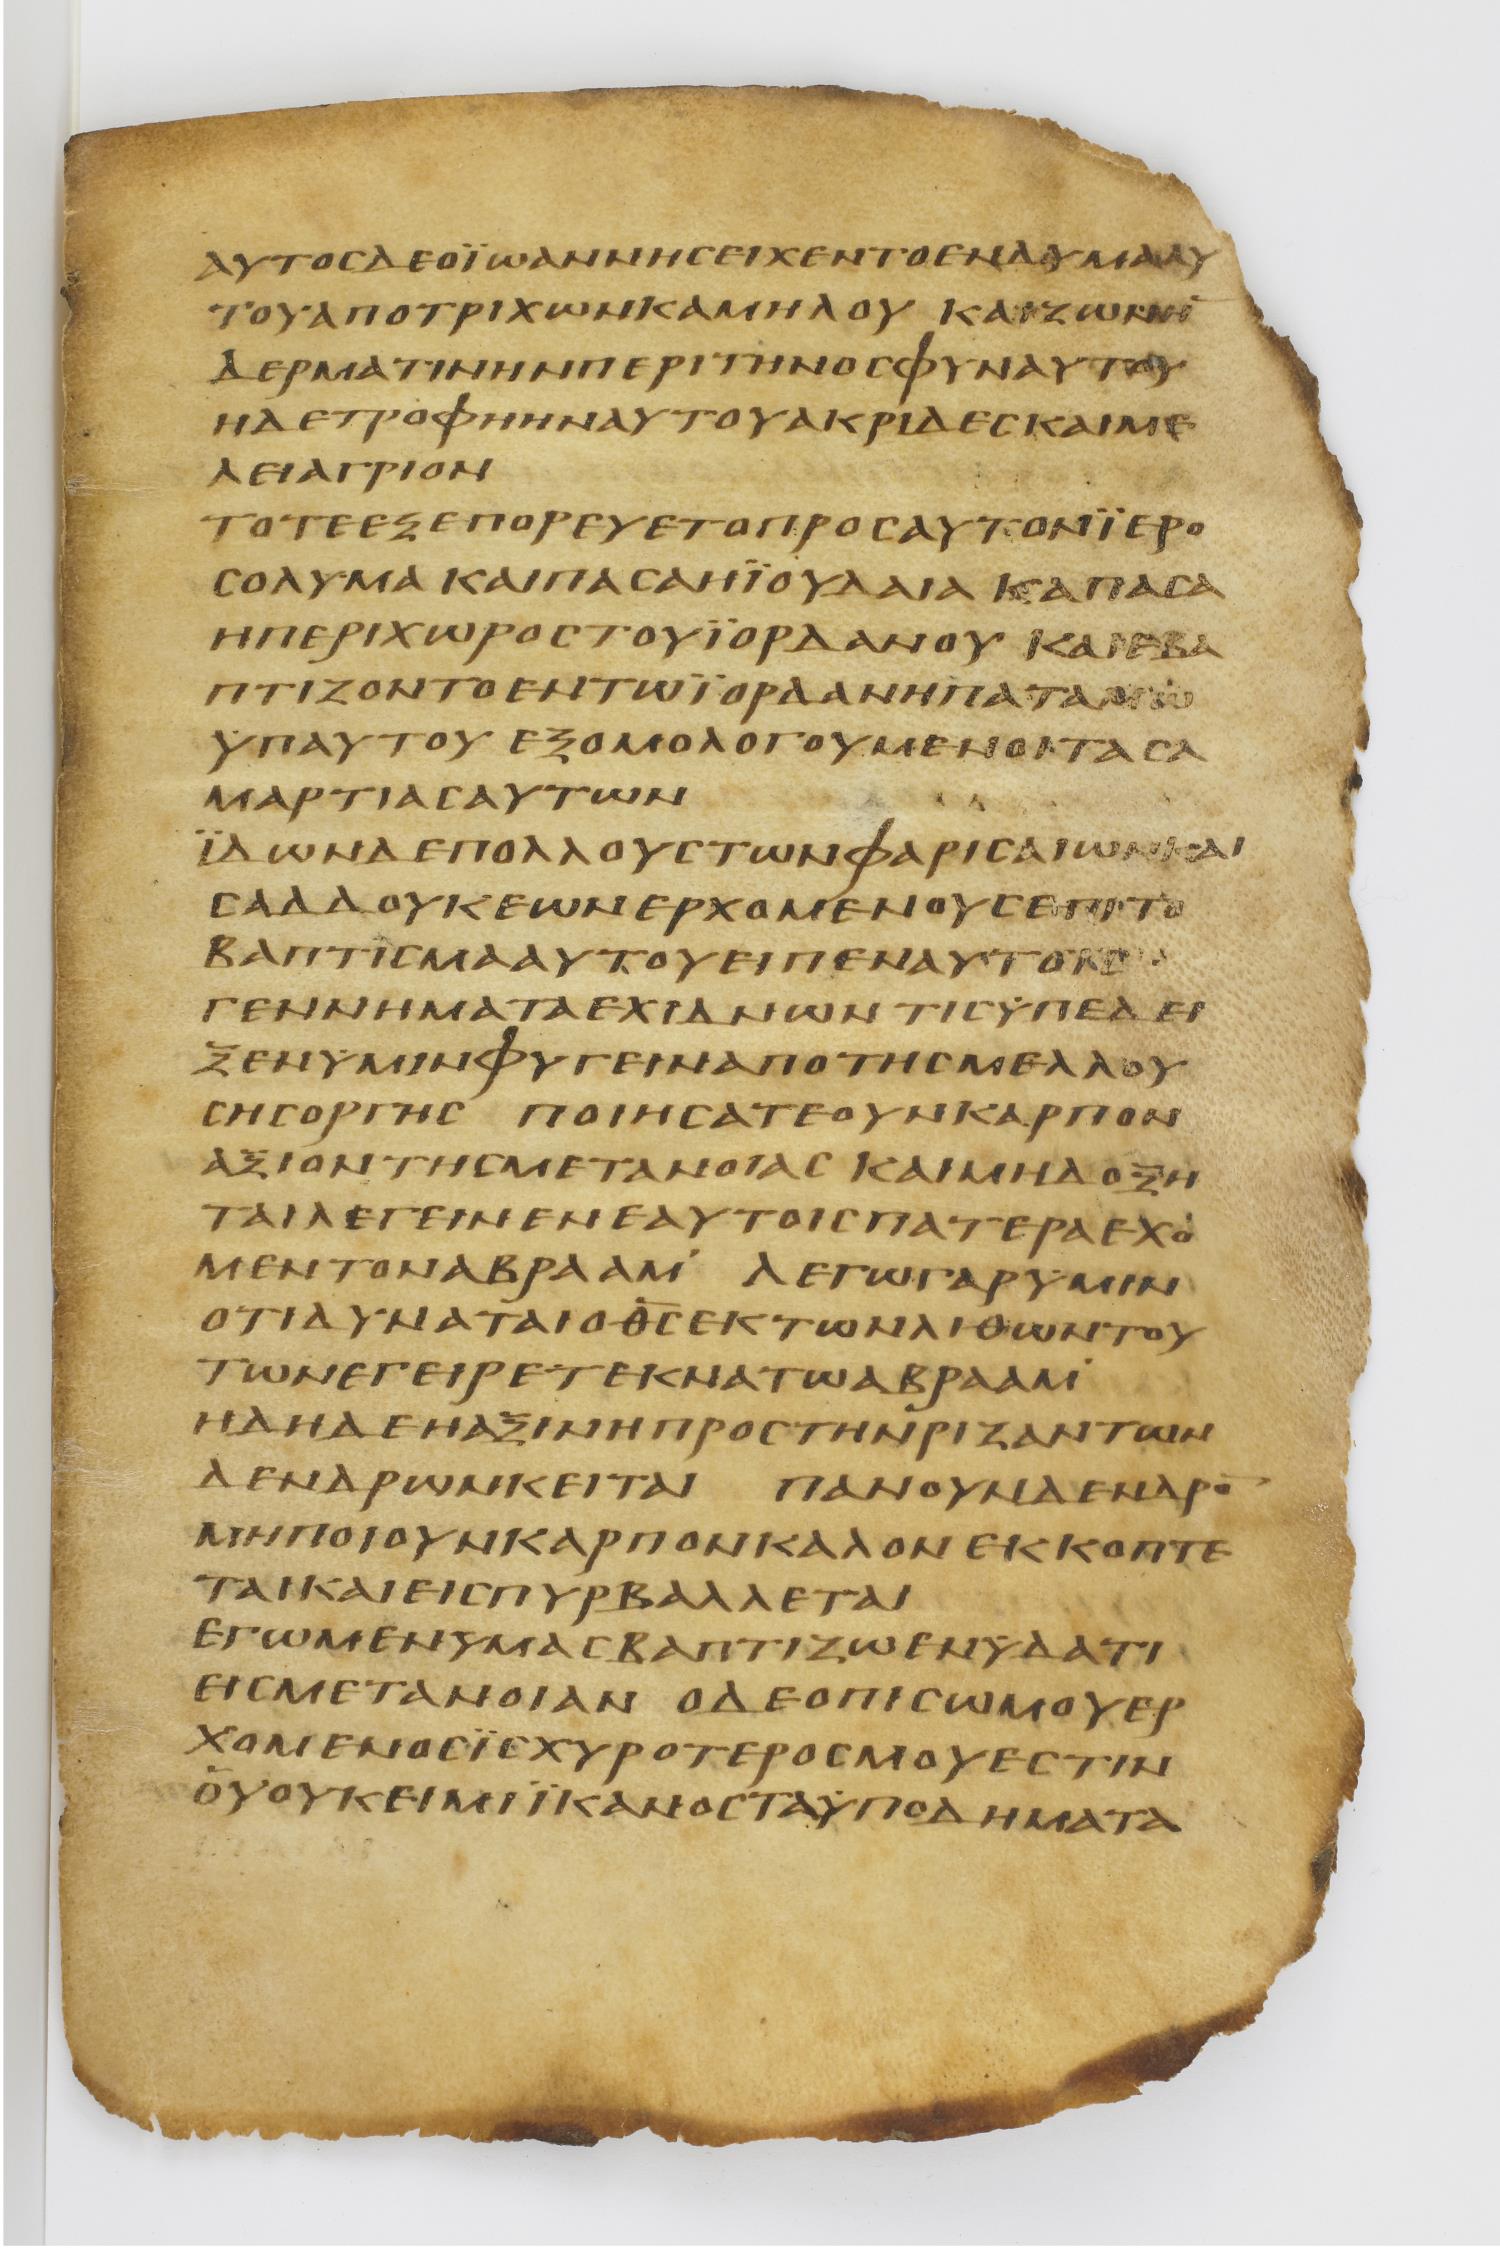 ΑΥΤΟϹΔΕΟΪΩΑΝΝΗϹΕΙΧΕΝΤΟΕΝΔΥΜΑΑΥ
ΤΟΥΑΠΟΤΡΙΧΩΝΚΑΜΗΛΟΥ ΚΑΙΖΩΝΗ̅
ΔΕΡΜΑΤΙΝΗΝΠΕΡΙΤΗΝΟϹΦΥΝΑΥΤΟΥ
ΗΔΕΤΡΟΦΗΗΝΑΥΤΟΥΑΚΡΙΔΕϹΚΑΙΜΕ
ΛΕΙΑΓΡΙΟΝ
ΤΟΤΕΕΞΕΠΟΡΕΥΕΤΟΠΡΟϹΑΥΤΟΝΪΕΡΟ
ϹΟΛΥΜΑ ΚΑΙΠΑϹΑΗΪΟΥΔΑΙΑ ΚΑΠΑϹΑ
ΗΠΕΡΙΧΩΡΟϹΤΟΥΪΟΡΔΑΝΟΥ ΚΑΙΕΒΑ
ΠΤΙΖΟΝΤΟΕΝΤΩΪΟΡΔΑΝΗΠΑΤΑΜΩ
ΫΠΑΥΤΟΥ ΕΞΟΜΟΛΟΓΟΥΜΕΝΟΙΤΑϹΑ
ΜΑΡΤΙΑϹΑΥΤΩΝ
ΪΔΩΝΔΕΠΟΛΛΟΥϹΤΩΝΦΑΡΙϹΑΙΩΝΚΑΙ
ϹΑΔΔΟΥΚΕΩΝΕΡΧΟΜΕΝΟΥϹΕΠΙΤΟ
ΒΑΠΤΙϹΜΑΑΥΤΟΥΕΙΠΕΝΑΥΤΟΙϹ
ΓΕΝΝΗΜΑΤΑΕΧΙΔΝΩΝ ΤΙϹΫΠΕΔΕΙ
ΞΕΝΫΜΙΝΦΥΓΕΙΝΑΠΟΤΗϹΜΕΛΛΟΥ
ϹΗϹΟΡΓΗϹ ΠΟΙΗϹΑΤΕΟΥΝΚΑΡΠΟΝ
ΑΞΙΟΝΤΗϹΜΕΤΑΝΟΙΑϹ ΚΑΙΜΗΔΟΞΗ
ΤΑΙΛΕΓΕΙΝΕΝΕΑΥΤΟΙϹΠΑΤΕΡΑΕΧΟ
ΜΕΝΤΟΝΑΒΡΑΑΜ ̓ ΛΕΓΩΓΑΡΫΜΙΝ
ΟΤΙΔΥΝΑΤΑΙΟΘ̅Ϲ̅ΕΚΤΩΝΛΙΘΩΝΤΟΥ
ΤΩΝΕΓΕΙΡΕΤΕΚΝΑΤΩΑΒΡΑΑΜ ̓
ΗΔΗΔΕΗΑΞΙΝΗΠΡΟϹΤΗΝΡΙΖΑΝΤΩΝ
ΔΕΝΔΡΩΝΚΕΙΤΑΙ ΠΑΝΟΥΝΔΕΝΔΡΟ̅
ΜΗΠΟΙΟΥΝΚΑΡΠΟΝΚΑΛΟΝ ΕΚΚΟΠΤΕ
ΤΑΙΚΑΙΕΙϹΠΥΡΒΑΛΛΕΤΑΙ
ΕΓΩΜΕΝΫΜΑϹΒΑΠΤΙΖΩΕΝΫΔΑΤΙ
ΕΙϹΜΕΤΑΝΟΙΑΝ ΟΔΕΟΠΙϹΩΜΟΥΕΡ
ΧΟΜΕΝΟϹΪϹΧΥΡΟΤΕΡΟϹΜΟΥΕϹΤΙΝ
ΟΥΟΥΚΕΙΜΙΪΚΑΝΟϹΤΑΫΠΟΔΗΜΑΤΑ